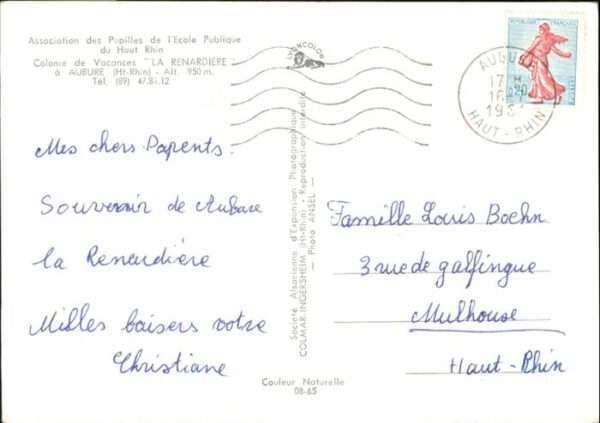 Association des Pupilles de l'Ecole Publique
du Haut Rhin
Colonie de Vacances "LA RENARDIÈRE"
à AUBURE (Ht-Rhin) - Alt. 950 m.
Tél. (89) 47.81.12
LYONCOLOR
REPUBLIQUE FRANÇAISE
0,20
POSTES
AUBURE
17 H
16
HAUT - RHIN
Mes chers Parents.
Souvenir de Aubure
la Renardière
Milles baisers votre
Christiane
Société Alsacienne d'Expansion Photographique
COLMAR-INGERSHEIM (Ht-Rhin) - Reproduction interdite
Photo ANSEL
Famille Louis Boehn
3 rue de galfingue
Mulhouse
Haut-Rhin
Couleur Naturelle
08-65